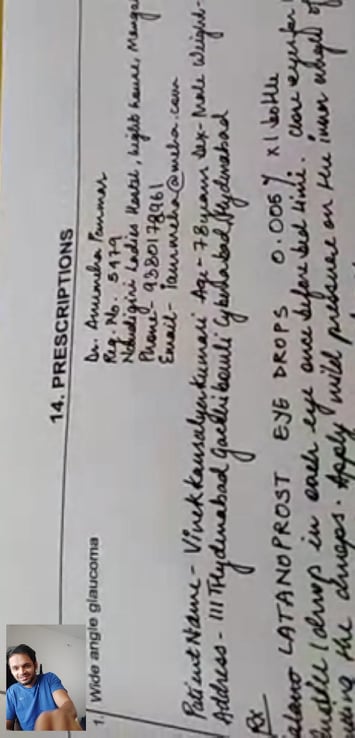 14. PRESCRIPTIONS
1. Wide angle glaucoma
Dr. Anumeha Panmar
Reg. No. 5479
Netridigini Ladies Hostel, Light house, Manga
Phone - 9380178961
Email - Ianumeha@meha.com
Patient Name - Vivek Kausalya Kumari Age - 78 years Sex - Male Weight -
Address - 111 Hyderabad Gachibowli Cyberabad, Hyderabad
Rx
LATANOPROST EYE DROPS 0.005% x 1 bottle
1 drop in each eye once before bed time. Close eyes for
the drops. Apply mild pressure on the inner angle of